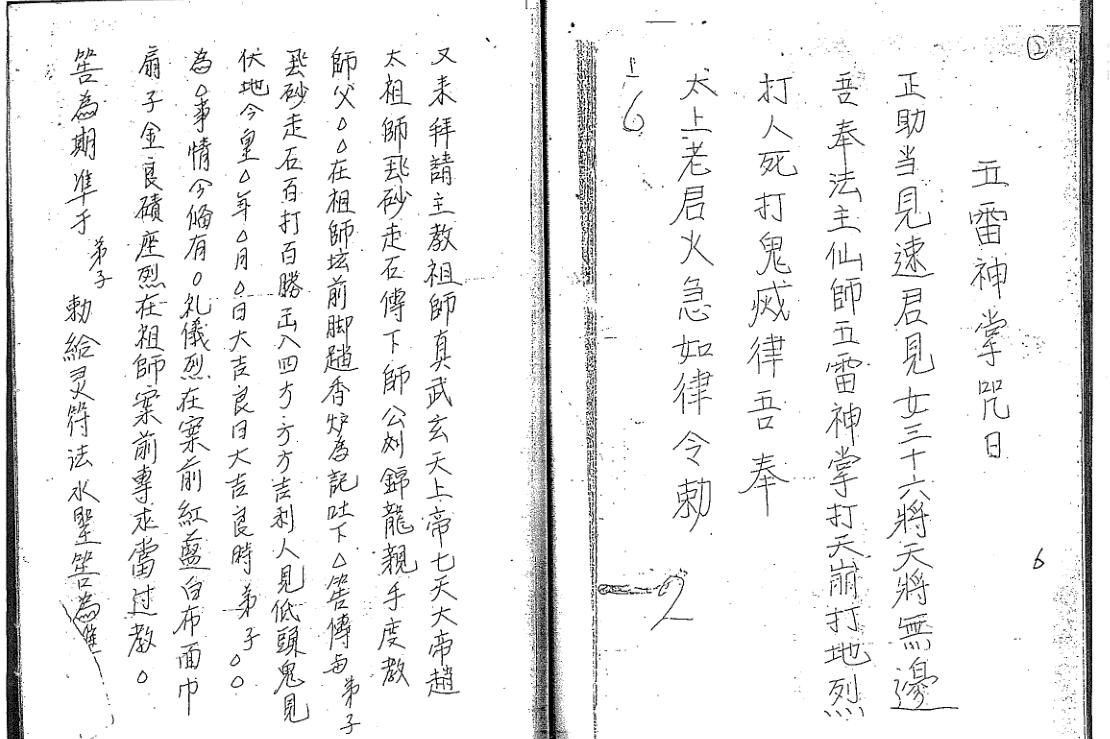 ②
五雷神掌咒曰
正助当見速君見女三十六將天將無邊
吾奉法主仙師五雷神掌打天崩打地烈
打人死打鬼滅律吾奉
太上老君火急如律令勅
6
6
2
又来拜請主教祖師真武玄天上帝七天大帝趙
太祖師飛砂走石傳下師公刘錦龍親手度教
師父△△在祖師坛前脚踏香炉為記吐下△筶傳与弟子
飛砂走石百打百勝出入四方方方吉利人見低頭鬼見
伏地今皇△年△月△日大吉良日大吉良時弟子○○
為△事情今俻有○礼儀烈在案前紅藍白布面巾
扇子金良磧座烈在祖師案前專求當过教○
筶為期準于弟子勅給灵符法水聖筶為準